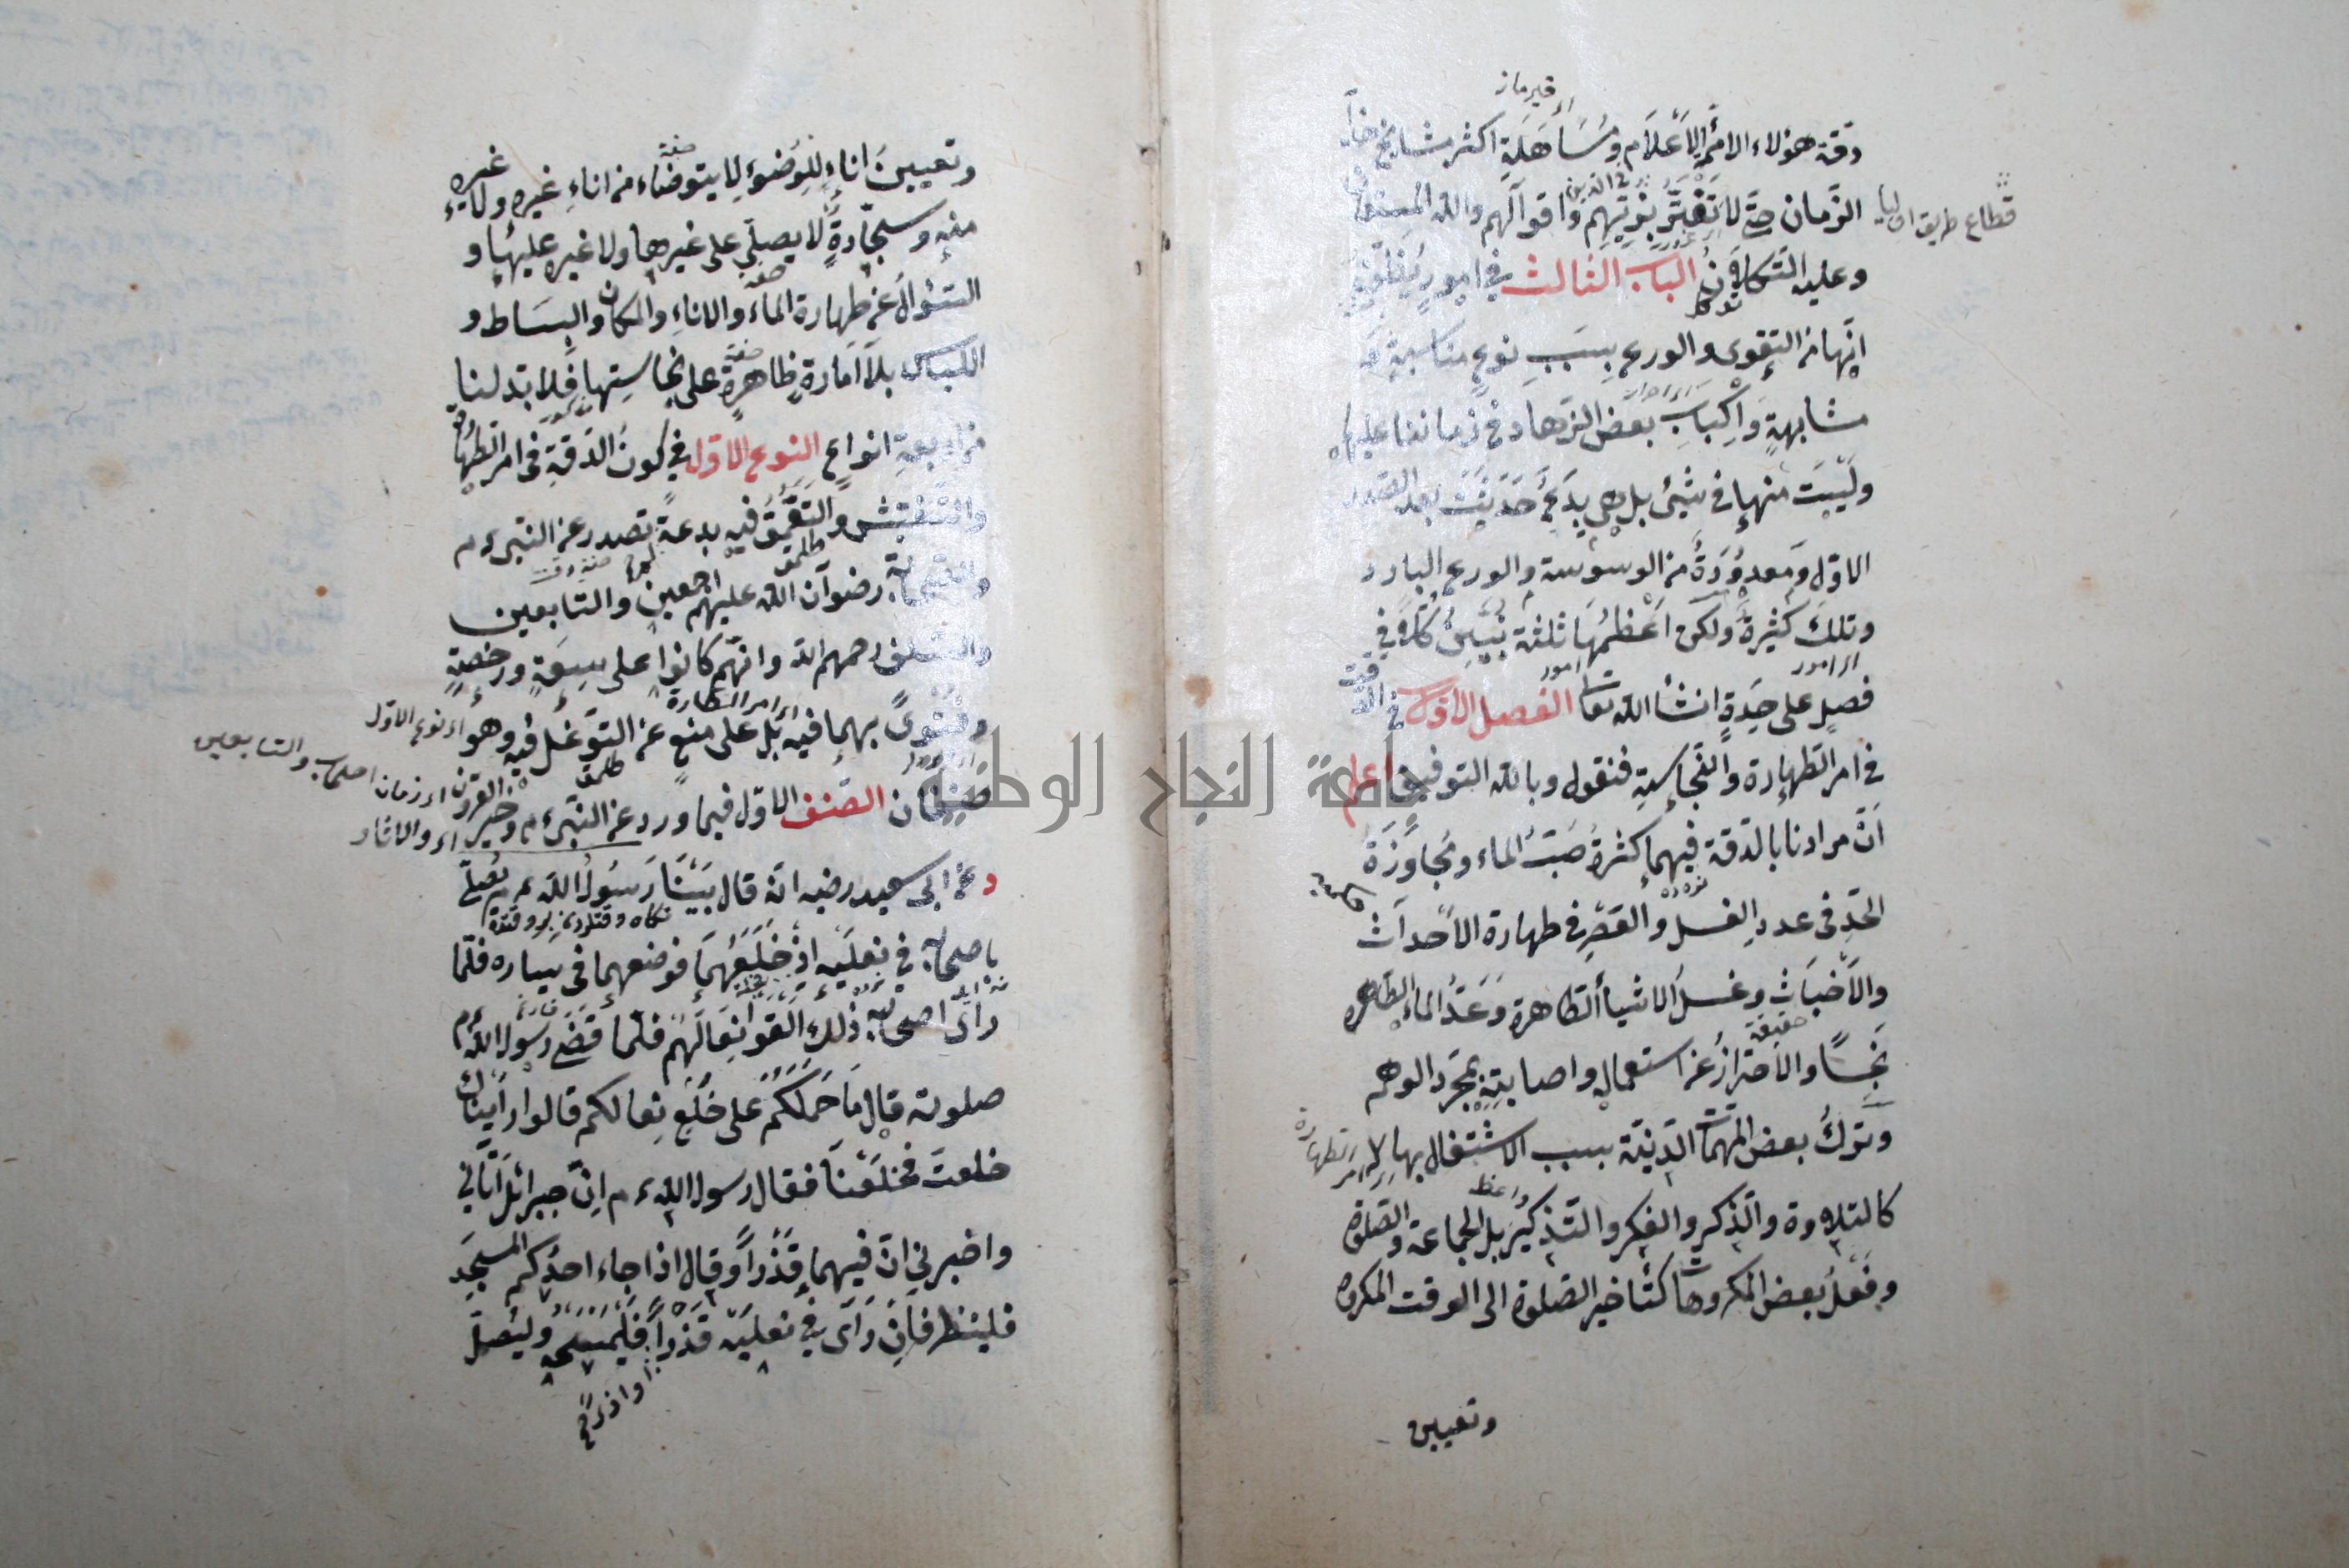 دقة هؤلاء الأئمة الأعلام ومساهلة اكثر مشايخ هذا
الزمان حتى لا تغتر بزيهم واقوالهم والله المستعان
قطاع طريق
وعليه التكلان الباب الثالث في امور يظن
انها من التقوى والورع بسبب نوع مناسبة
مشابهة واكباب بعض الزهاد في زماننا عليها
وليست منها في شيئ بل هي بدع حدثت بعد الصدر
الاول ومعدودة من الوسوسة والورع البارد
وتلك كثيرة ولكن اعظمها ثلثة نبين كلا في
فصل على حدة ان شأ الله تعا الفصل الاول في الدقة
في امر الطهارة والنجاسة فنقول وبالله التوفيق اعلم
ان مرادنا بالدقة فيهما كثرة صب الماء ومجاوزة
الحد في عدد الغسل والعصر في طهارة الأحداث
والأخباث وغسل الاشيأ الطاهرة وعد الماء الطاهر
نجسا والاحتراز عن استعمال واصابته بمجرد الوهم
وترك بعض المهمات الدينية بسبب الاشتغال بها
كالتلاوة والذكر والفكر والتذكير بل الجماعة والصلوة
وفعل بعض المكروهات كتأخير الصلوة الى الوقت المكروه
وتعيين
وتعيين اناء للوضوء لا يتوضاء من اناء غيره ولا غيره
منه وسجادة لا يصلي على غيرها ولا غيره عليها و
السئوال عن طهارة الماء والاناء والمكان والبساط و
اللباس بلا امارة ظاهرة على نجاستها فلا بد لنا
من اربعة انواع النوع الاول في كون الدقة في امر الطهارة
والتفتيش والتعمق فيه بدعة لم تصدر عن النبي ءم
والصحابة رضوان الله عليهم اجمعين والتابعين
والسلف رحمهم الله وانهم كانوا على سعة ورخصة
وفتوى بهما فيه بل على منع عن التوغل فيه وهو
اى امر الطهارة
اى نوع الاول
صنفان الصنف الاول فيما ورد عن النبي ءم وخير القرون
اى زمان اصحاب والتابعين
د عن ابى سعيد رضيه انه قال بينا رسول الله ءم يصلي
باصحابه في نعليه اذ خلعهما فوضعهما في يساره فلما
رأى اصحابه ذلك القوا نعالهم فلما قضى رسول الله ءم
صلوته قال ما حملكم على خلع نعالكم قالوا رأيناك
خلعت فخلعنا فقال رسول الله ءم ان جبرائل اتاني
واخبرني ان فيهما قذرا وقال اذا جاء احدكم المسجد
فلينظر فان رأى في نعليه قذرا فليمسحه وليصل
جامعة النجاح الوطنية